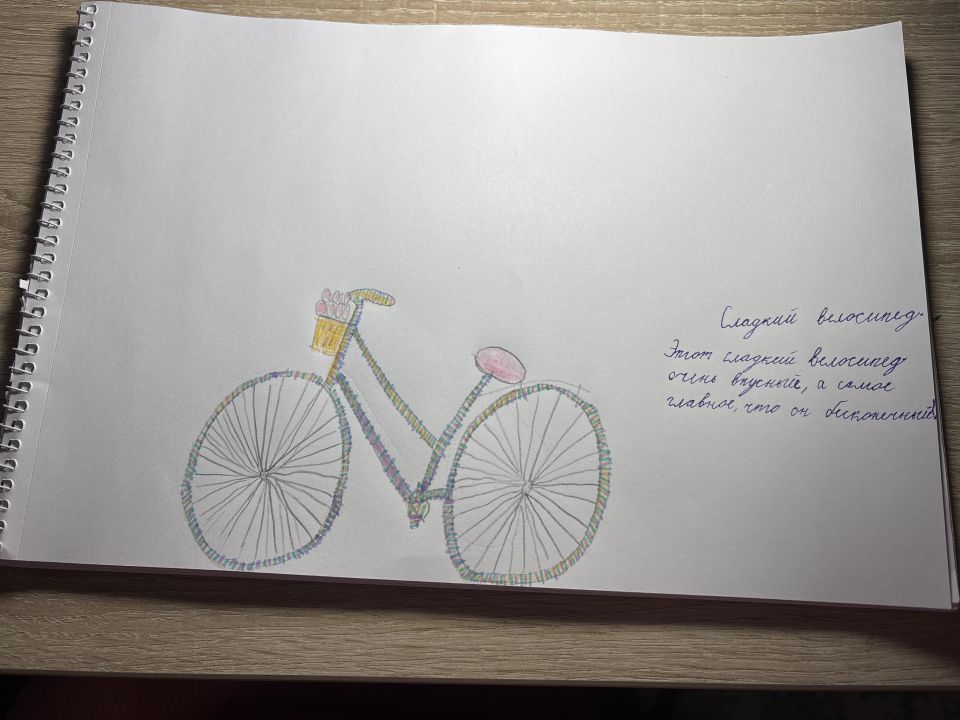 Сладкий велосипед.
Этот сладкий велосипед
очень вкусный, а самое
главное, что он бесконечный!